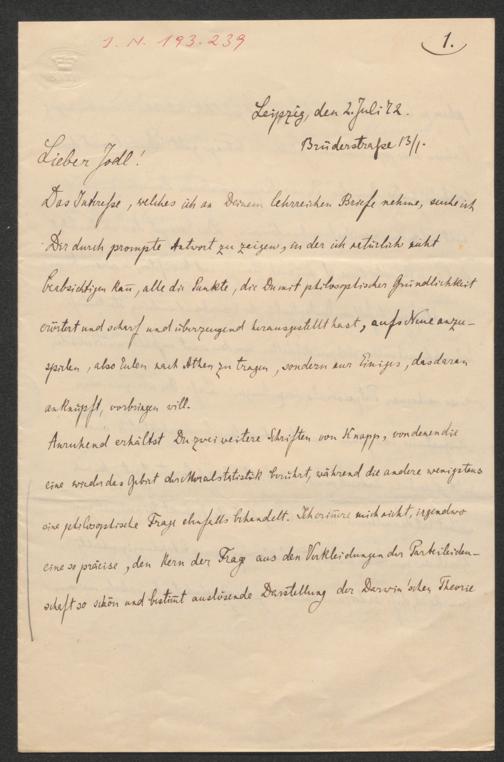 J. N. 193.239
1.
Leipzig, den 2. Juli 72.
Brüderstraße 13/I.
Lieber Jodl!
Das Intereße, welches ich an Deinem lehrreichen Briefe nehme, suche ich
Dir durch prompte Antwort zu zeigen, in der ich natürlich nicht
beabsichtigen kañ, alle die Punkte, die Du mit philosophischer Gründlichkeit
erörtert und scharf und überzeugend herausgestellt hast, aufs Neue anzu-
spielen, also Eulen nach Athen zu tragen, sondern nur Einiges, das daran
anknüpft, vorbringen will.
Anruhend erhältst Du zwei weitere Schriften von Knapp, von denen die
eine wieder das Gebiet der Moralstatistik berührt, während die andere wenigstens
eine philosophische Frage ebenfalls behandelt. Ich eriñre mich nicht, irgendwo
eine so präcise, den Kern der Frage aus den Verkleidungen der Parteileiden-
schaft so schön und bestim̃t auslösende Darstellung der Darwin'schen Theorie